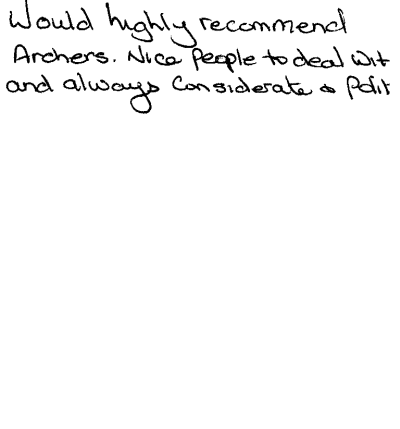 Would highly recommend
Archers. Nice People to deal wit
and always Considerate & Polit